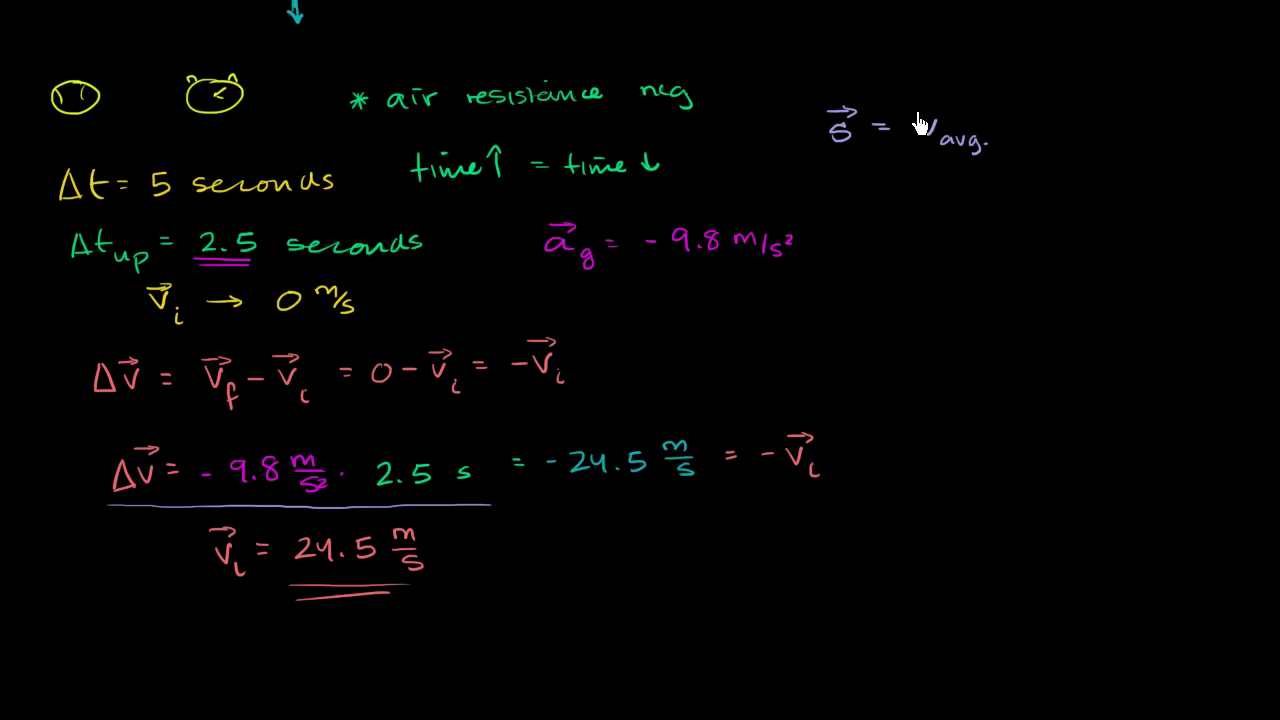 * air resistance neg
s⃗ = v avg.
Δt = 5 seconds
time ↑ = time ↓
Δt up = 2.5 seconds
a⃗g = - 9.8 m/s²
v⃗i → 0 m/s
Δv⃗ = v⃗f - v⃗i = 0 - v⃗i = -v⃗i
Δv⃗ = - 9.8 m/s² · 2.5 s = - 24.5 m/s = - v⃗i
v⃗i = 24.5 m/s